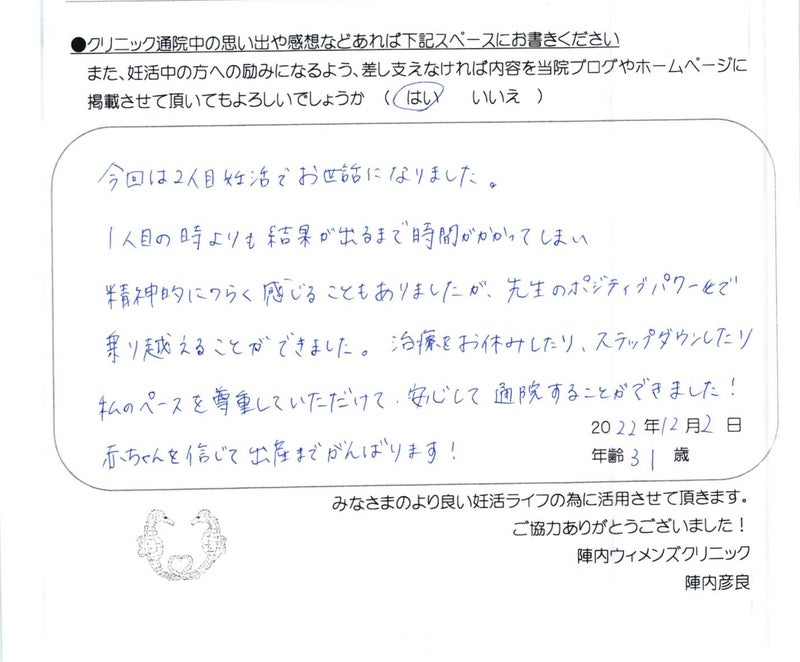 ●クリニック通院中の思い出や感想などあれば下記スペースにお書きください
また、妊活中の方への励みになるよう、差し支えなければ内容を当院ブログやホームページに
掲載させて頂いてもよろしいでしょうか （ はい　いいえ ）
今回は2人目妊活でお世話になりました。
1人目の時よりも結果が出るまで時間がかかってしまい
精神的につらく感じることもありましたが、先生のポジティブパワーで
乗り越えることができました。治療をお休みしたり、ステップダウンしたり
私のペースを尊重していただけて、安心して通院することができました！
赤ちゃんを信じて出産までがんばります！
2022年12月2日
年齢31歳
みなさまのより良い妊活ライフの為に活用させて頂きます。
ご協力ありがとうございました！
陣内ウィメンズクリニック
陣内彦良